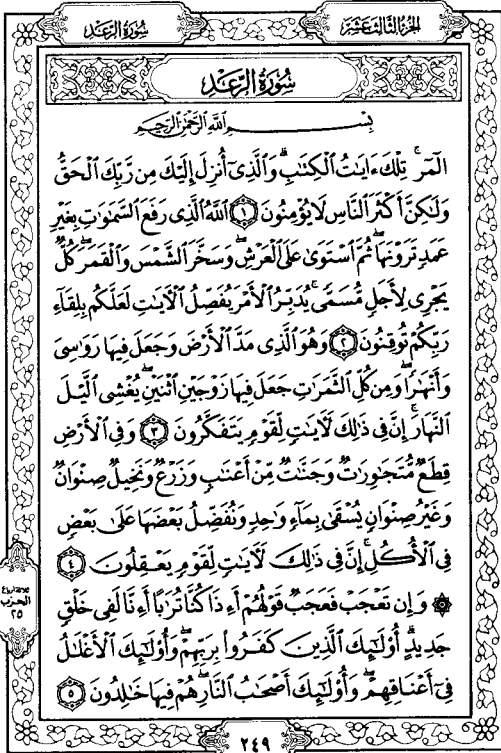 سُورَةُ الرَّعْدِ
الجُزْءُ الثَّالِثَ عَشَرَ
سُورَةُ الرَّعْدِ
بِسْمِ ٱللَّهِ ٱلرَّحْمَٰنِ ٱلرَّحِيمِ
الٓمٓر ۚ تِلْكَ ءَايَٰتُ ٱلْكِتَٰبِ ۗ وَٱلَّذِىٓ أُنزِلَ إِلَيْكَ مِن رَّبِّكَ ٱلْحَقُّ
وَلَٰكِنَّ أَكْثَرَ ٱلنَّاسِ لَا يُؤْمِنُونَ ١ ٱللَّهُ ٱلَّذِى رَفَعَ ٱلسَّمَٰوَٰتِ بِغَيْرِ
عَمَدٍ تَرَوْنَهَا ۖ ثُمَّ ٱسْتَوَىٰ عَلَى ٱلْعَرْشِ ۖ وَسَخَّرَ ٱلشَّمْسَ وَٱلْقَمَرَ ۖ كُلٌّ
يَجْرِى لِأَجَلٍ مُّسَمًّى ۚ يُدَبِّرُ ٱلْأَمْرَ يُفَصِّلُ ٱلْءَايَٰتِ لَعَلَّكُم بِلِقَآءِ
رَبِّكُمْ تُوقِنُونَ ٢ وَهُوَ ٱلَّذِى مَدَّ ٱلْأَرْضَ وَجَعَلَ فِيهَا رَوَٰسِىَ
وَأَنْهَٰرًا ۖ وَمِن كُلِّ ٱلثَّمَرَٰتِ جَعَلَ فِيهَا زَوْجَيْنِ ٱثْنَيْنِ ۖ يُغْشِى ٱلَّيْلَ
ٱلنَّهَارَ ۚ إِنَّ فِى ذَٰلِكَ لَءَايَٰتٍ لِّقَوْمٍ يَتَفَكَّرُونَ ٣ وَفِى ٱلْأَرْضِ
قِطَعٌ مُّتَجَٰوِرَٰتٌ وَجَنَّٰتٌ مِّنْ أَعْنَٰبٍ وَزَرْعٌ وَنَخِيلٌ صِنْوَانٌ
وَغَيْرُ صِنْوَانٍ يُسْقَىٰ بِمَآءٍ وَٰحِدٍ وَنُفَضِّلُ بَعْضَهَا عَلَىٰ بَعْضٍ
فِى ٱلْأُكُلِ ۚ إِنَّ فِى ذَٰلِكَ لَءَايَٰتٍ لِّقَوْمٍ يَعْقِلُونَ ٤
۞ وَإِن تَعْجَبْ فَعَجَبٌ قَوْلُهُمْ أَءِذَا كُنَّا تُرَٰبًا أَءِنَّا لَفِى خَلْقٍ
جَدِيدٍ ۗ أُو۟لَٰٓئِكَ ٱلَّذِينَ كَفَرُوا۟ بِرَبِّهِمْ ۖ وَأُو۟لَٰٓئِكَ ٱلْأَغْلَٰلُ
فِىٓ أَعْنَاقِهِمْ ۖ وَأُو۟لَٰٓئِكَ أَصْحَٰبُ ٱلنَّارِ ۖ هُمْ فِيهَا خَٰلِدُونَ ٥
الحزب
٢٥
٢٤٩